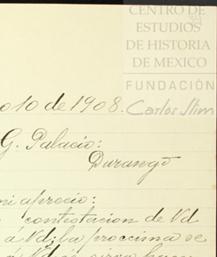 CENTRO DE
ESTUDIOS
DE HISTORIA
DE MEXICO
FUNDACIÓN
Carlos Slim
o 10 de 1908.
G. Palacio:
Durango
mi aprecio:
contestacion de Vd
á Vd; la proccima se